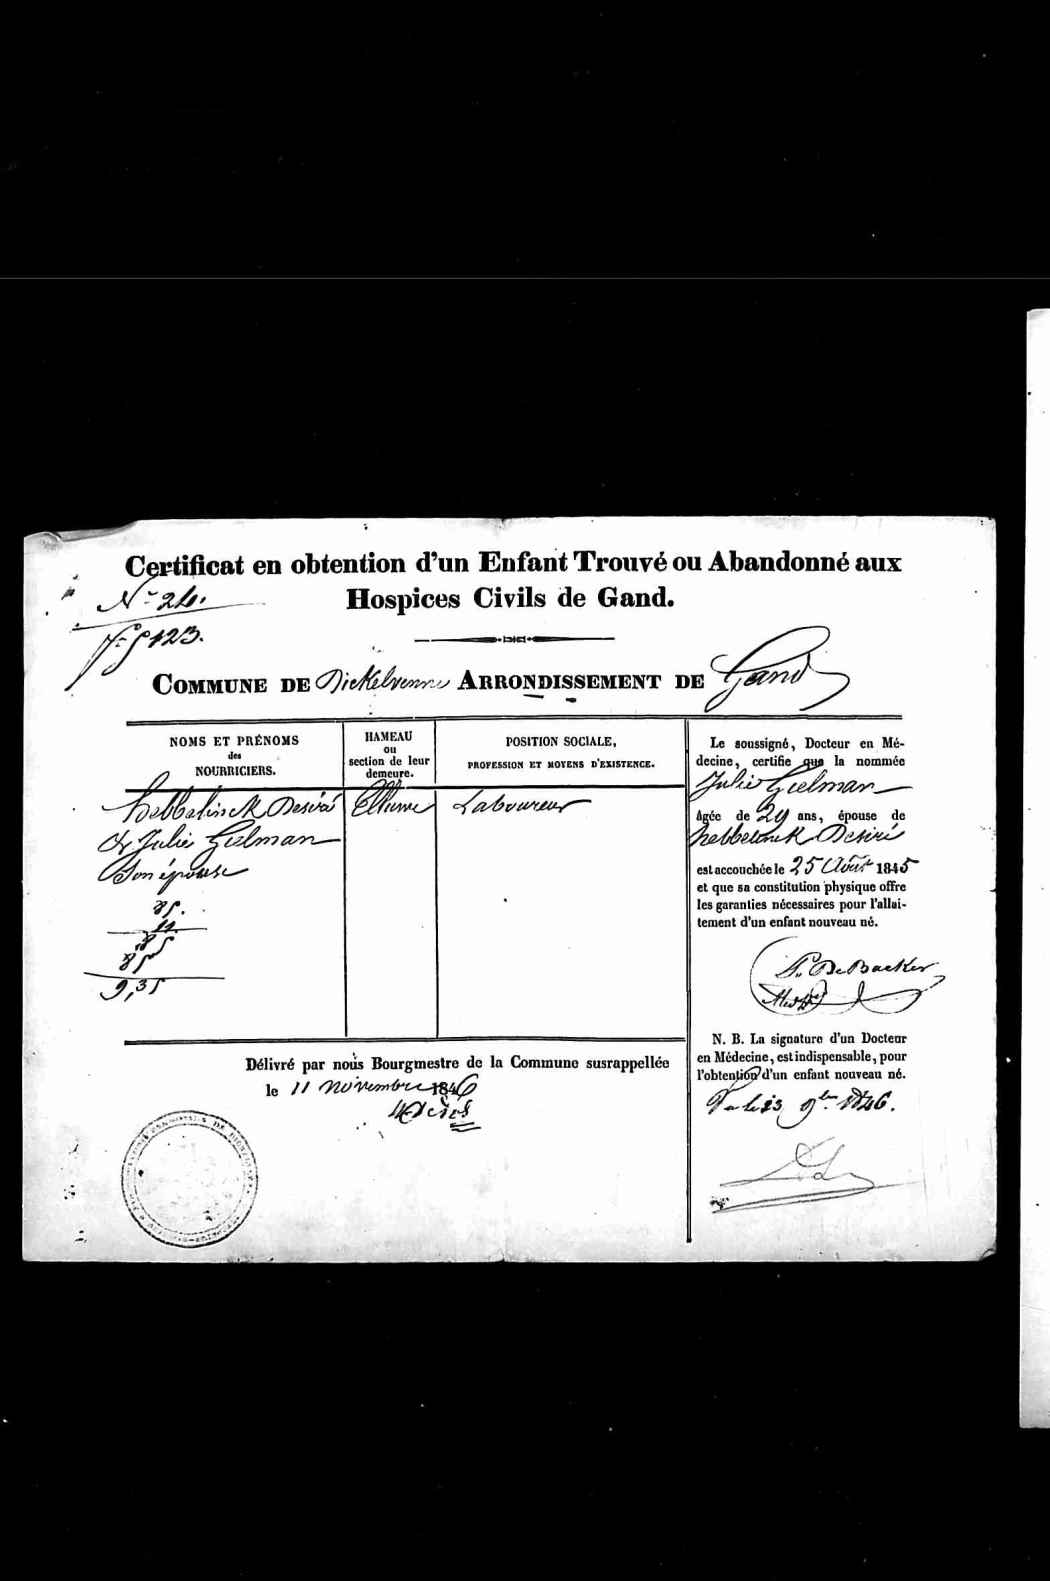 Certificat en obtention d'un Enfant Trouvé ou Abandonné aux
Hospices Civils de Gand.
N° 24.
123.
COMMUNE DE Dickelvenne ARRONDISSEMENT DE Gand
NOMS ET PRÉNOMS
des
NOURRICIERS.
HAMEAU
ou
section de leur
demeure.
POSITION SOCIALE,
PROFESSION ET MOYENS D'EXISTENCE.
hebbelinck Desiré
& Julie Gielman
Son épouse
Laboureur
85.
11.
9,35
Le soussigné, Docteur en Mé-
decine, certifie que la nommée
Julie Gielman
âgée de 29 ans, épouse de
hebbelinck Desiré
est accouchée le 25 Août 1845
et que sa constitution physique offre
les garanties nécessaires pour l'allai-
tement d'un enfant nouveau né.
De Backer
N. B. La signature d'un Docteur
en Médecine, est indispensable, pour
l'obtention d'un enfant nouveau né.
23 9bre 1846.
Délivré par nous Bourgmestre de la Commune susrappellée
le 11 novembre 1846